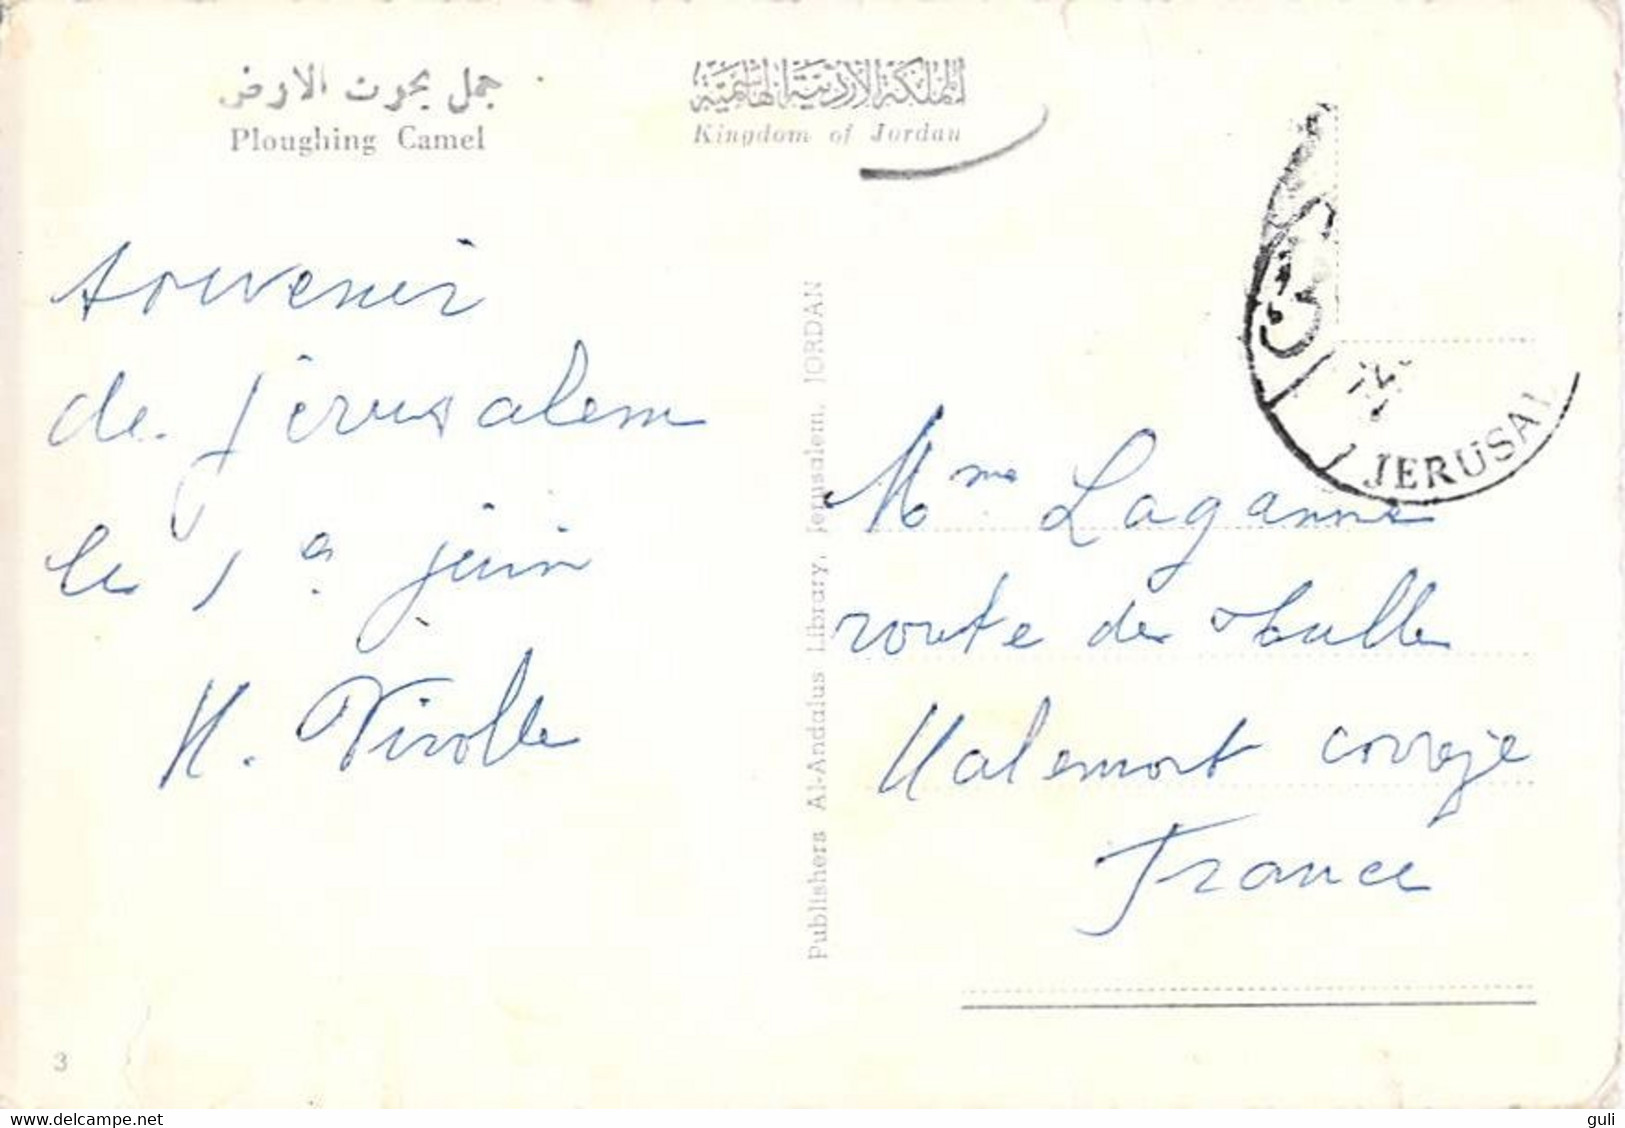 جمل يحرث الارض
Ploughing Camel
المملكة الأردنية الهاشمية
Kingdom of Jordan
souvenir
de Jérusalem
le 1er juin
H. Virolle
Publishers Al-Andalus Library, Jerusalem, JORDAN
JERUSAL
Mme Laganne
route de Tulle
Malemort corrèze
France
3
delcampe.net
guli